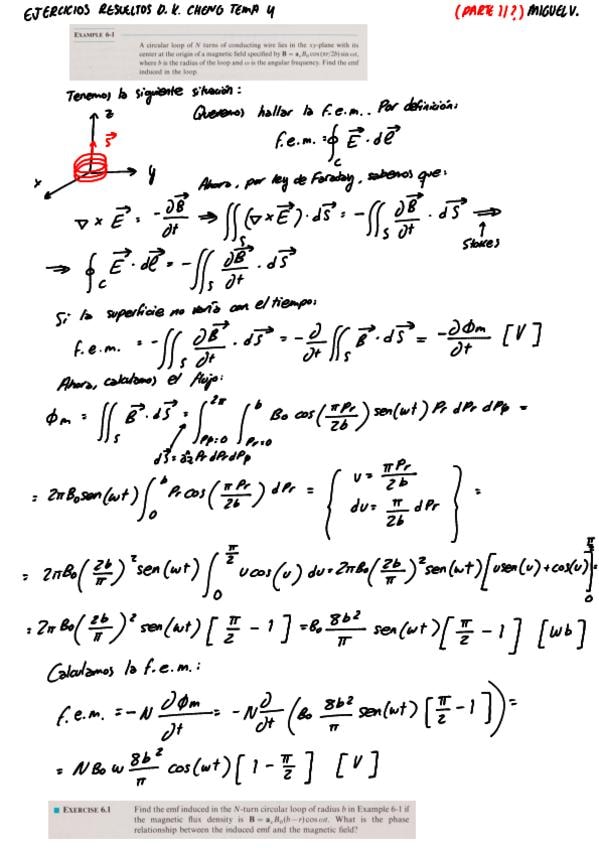 EJERCICIOS RESUELTOS D. K. CHENG TEMA 4 (PARTE 1/?) MIGUEL V.
EXAMPLE 6-1
A circular loop of N turns of conducting wire lies in the xy-plane with its
center at the origin of a magnetic field specified by B = a_z B₀ cos (πr/2b) sin ωt,
where b is the radius of the loop and ω is the angular frequency. Find the emf
induced in the loop.
Tenemos la siguiente situación:
Queremos hallar la f.e.m.. Por definición:
z
S⃗
f.e.m. = ∮_C E⃗ · dl⃗
y
x
Ahora, por ley de Faraday, sabemos que:
∇ × E⃗ = -∂B⃗/∂t ⇒ ∬_S (∇ × E⃗) · dS⃗ = -∬_S ∂B⃗/∂t · dS⃗ ⇒
Stokes
⇒ ∮_C E⃗ · dl⃗ = -∬_S ∂B⃗/∂t · dS⃗
Si la superficie no varía con el tiempo:
f.e.m. = -∬_S ∂B⃗/∂t · dS⃗ = -∂/∂t ∬_S B⃗ · dS⃗ = -∂Φm/∂t [V]
Ahora, calculamos el flujo:
Φm = ∬_S B⃗ · dS⃗ = ∫_{Pφ=0}^{2π} ∫_{Pr=0}^{b} B₀ cos(πPr/2b) sen(ωt) Pr dPr dPφ =
dS⃗ = âz Pr dPr dPφ
= 2πB₀ sen(ωt) ∫_0^b Pr cos(πPr/2b) dPr = { u = πPr/2b
du = π/2b dPr } =
= 2πB₀ (2b/π)² sen(ωt) ∫_0^{π/2} u cos(u) du = 2πB₀ (2b/π)² sen(ωt) [u sen(u) + cos(u)]_0^{π/2} =
= 2πB₀ (2b/π)² sen(ωt) [π/2 - 1] = B₀ 8b²/π sen(ωt) [π/2 - 1] [Wb]
Calculamos la f.e.m.:
f.e.m. = -N ∂Φm/∂t = -N ∂/∂t (B₀ 8b²/π sen(ωt) [π/2 - 1]) =
= N B₀ ω 8b²/π cos(ωt) [1 - π/2] [V]
EXERCISE 6.1 Find the emf induced in the N-turn circular loop of radius b in Example 6-1 if
the magnetic flux density is B = a_z B₀(b − r) cos ωt. What is the phase
relationship between the induced emf and the magnetic field?